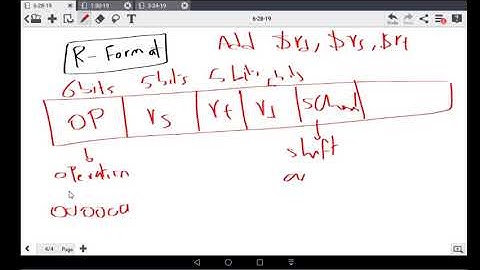 6-28-19 1-30-19 3-24-19
6-28-19
R-Format Add $rd, $rs, $rt
6bits 5bits 5bits, bits
OP rs rt rd
operation shift
000000
4/4 Page